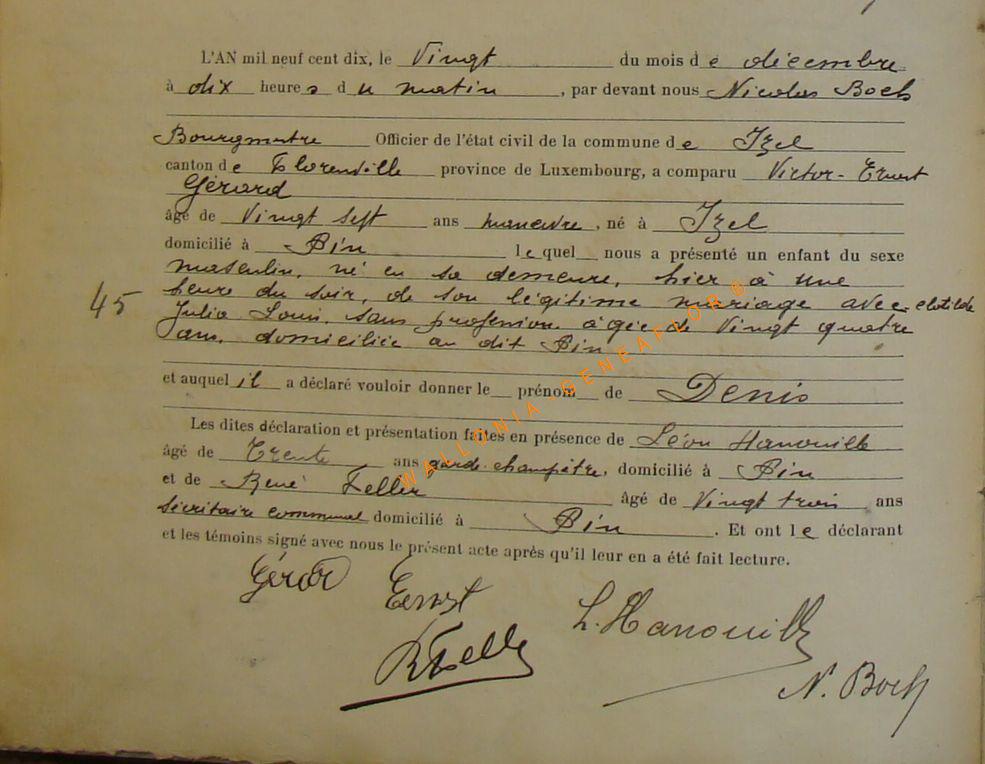 L'AN mil neuf cent dix, le Vingt du mois de décembre
à dix heures du matin, par devant nous Nicolas Boch
Bourgmestre Officier de l'état civil de la commune de Izel
canton de Florenville province de Luxembourg, a comparu Victor-Ernest
Gérard
âgé de Vingt sept ans manœuvre, né à Izel
domicilié à Pin lequel nous a présenté un enfant du sexe
masculin, né en sa demeure, hier à une
heure du soir, de son légitime mariage avec Clotilde
Julia Louis, sans profession, âgée de Vingt quatre
ans, domiciliée au dit Pin
45
et auquel il a déclaré vouloir donner le prénom de Denis
Les dites déclaration et présentation faites en présence de Léon Hanouille
âgé de Trente ans garde-champêtre, domicilié à Pin
et de René Feller âgé de Vingt trois ans
secrétaire communal domicilié à Pin. Et ont le déclarant
et les témoins signé avec nous le présent acte après qu'il leur en a été fait lecture.
Gérard Ernest
L. Hanouille
RFeller
N. Boch
WALLONIA GENEAFLOR ©